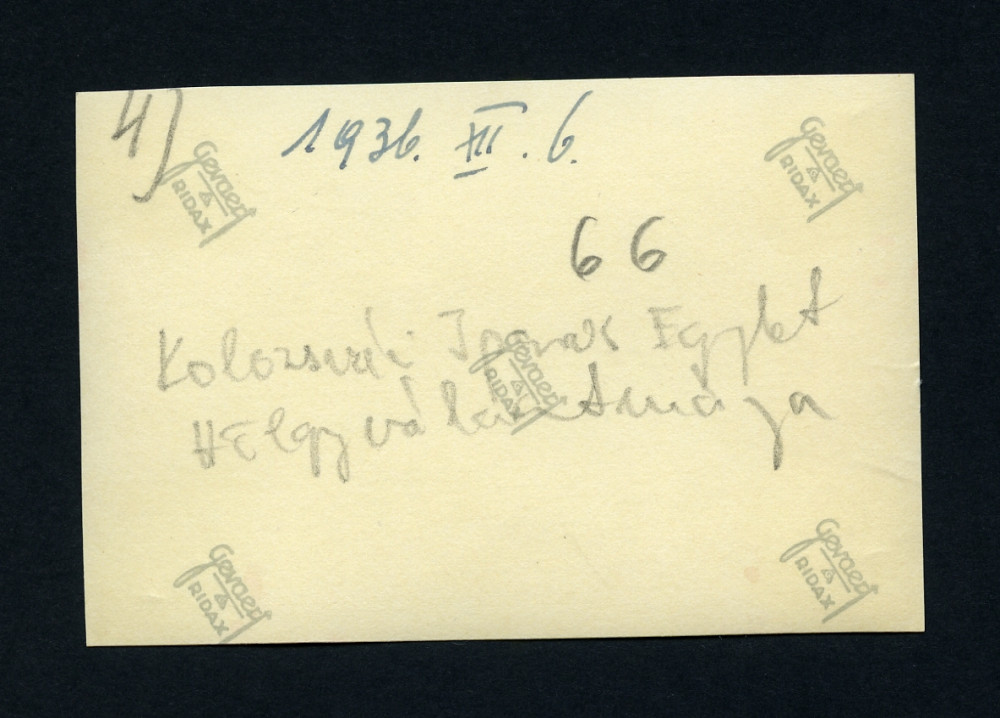 4)
1936. XII. 6.
66
Kolozsvári Iparos Egylet
Hölgyválasztmánya
Gevaert
RIDAX
Gevaert
RIDAX
Gevaert
RIDAX
Gevaert
RIDAX
Gevaert
RIDAX